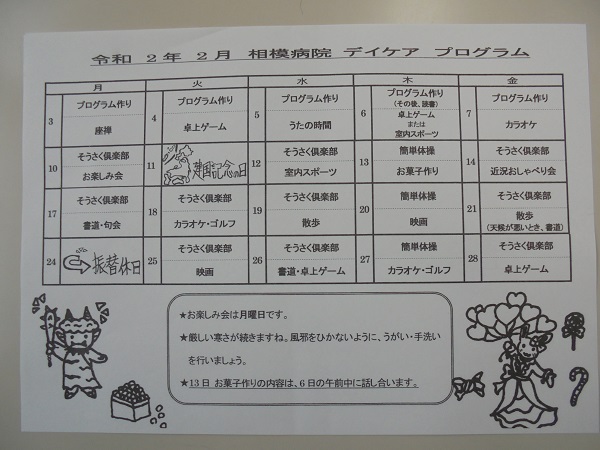 令和 2年 2月 相模病院 デイケア プログラム
月 火 水 木 金
3 プログラム作り
座禅
4 プログラム作り
卓上ゲーム
5 プログラム作り
うたの時間
6 プログラム作り
(その後、読書)
卓上ゲーム
または
室内スポーツ
7 プログラム作り
カラオケ
10 そうさく倶楽部
お楽しみ会
11 建国記念の日
12 そうさく倶楽部
室内スポーツ
13 簡単体操
お菓子作り
14 そうさく倶楽部
近況おしゃべり会
17 そうさく倶楽部
書道・句会
18 そうさく倶楽部
カラオケ・ゴルフ
19 そうさく倶楽部
散歩
20 簡単体操
映画
21 そうさく倶楽部
散歩
(天候が悪いとき、書道)
24 振替休日
25 そうさく倶楽部
映画
26 そうさく倶楽部
書道・卓上ゲーム
27 簡単体操
カラオケ・ゴルフ
28 そうさく倶楽部
卓上ゲーム
★お楽しみ会は月曜日です。
★厳しい寒さが続きますね。風邪をひかないように、うがい・手洗い
を行いましょう。
★13日 お菓子作りの内容は、6日の午前中に話し合います。